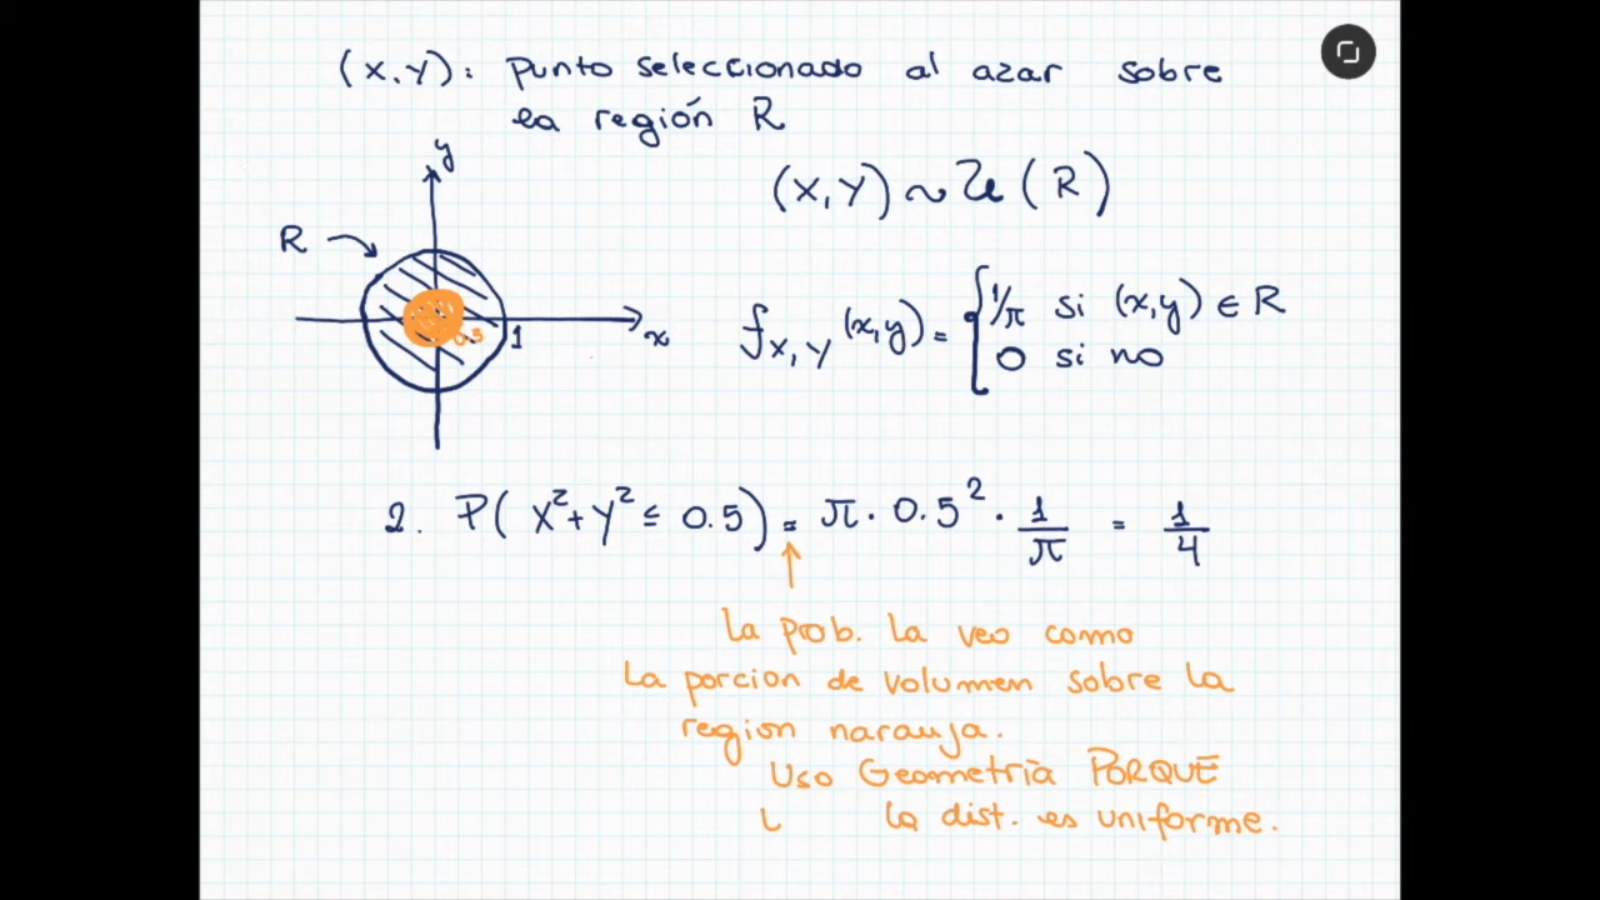 (X,Y): punto seleccionado al azar sobre
la región R
y
(X,Y) ~ U(R)
R
0.5 1 x
f_{X,Y}(x,y) = { 1/π si (x,y) ∈ R
0 si no
2. P(X² + Y² ≤ 0.5) = π · 0.5² · 1/π = 1/4
La prob. la veo como
la porcion de volumen sobre la
region naranja.
Uso Geometría PORQUE
la dist. es uniforme.